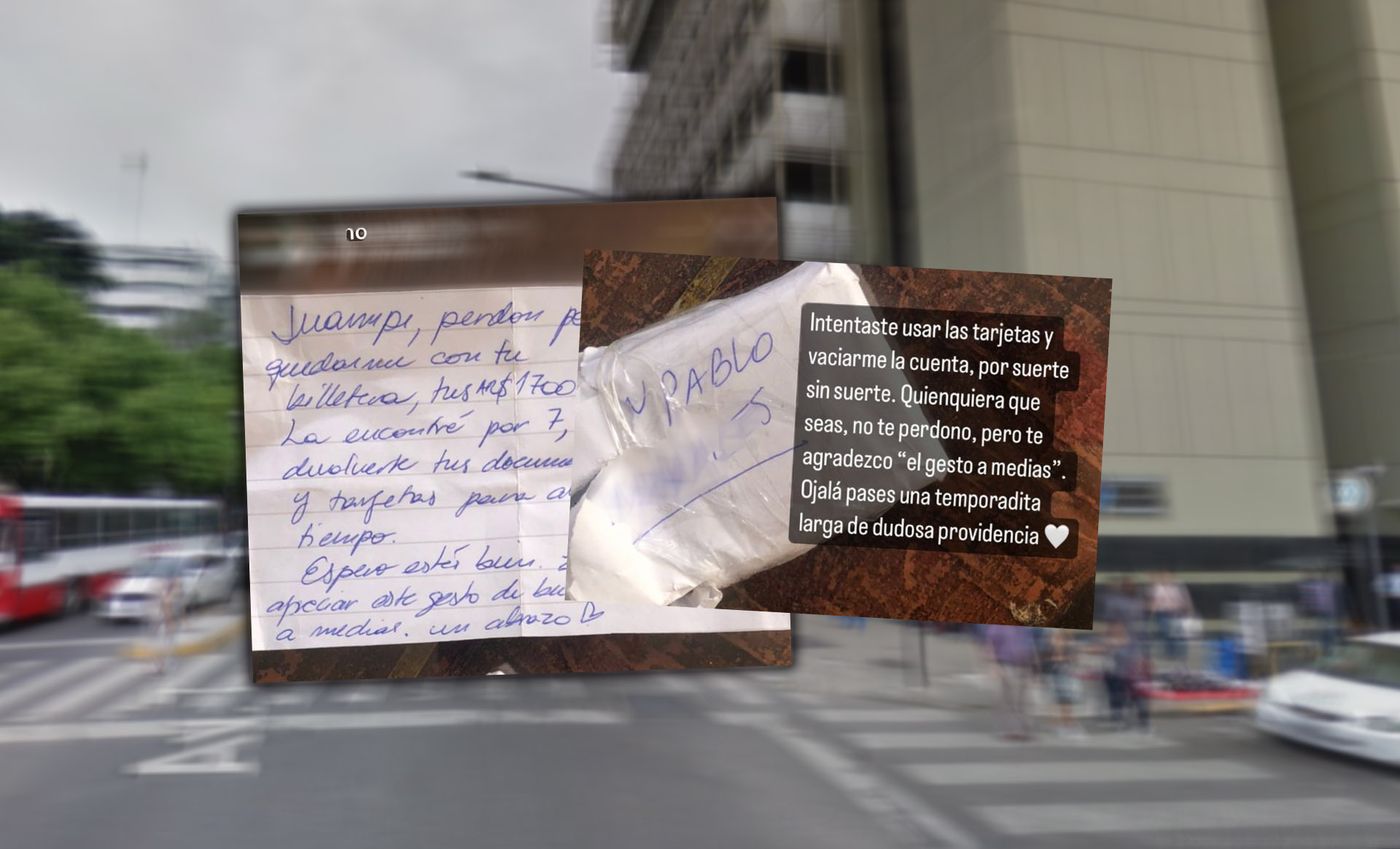 Juampi, perdon
quedarme con tu
billetera, tus AR$ 1700
La encontré por 7,
tus
y tarjetas para
tiempo.
Espero estés bien.
apreciar este gesto de
a medias. un abrazo
J PABLO
Intentaste usar las tarjetas y
vaciarme la cuenta, por suerte
sin suerte. Quienquiera que
seas, no te perdono, pero te
agradezco “el gesto a medias”.
Ojalá pases una temporadita
larga de dudosa providencia 🤍